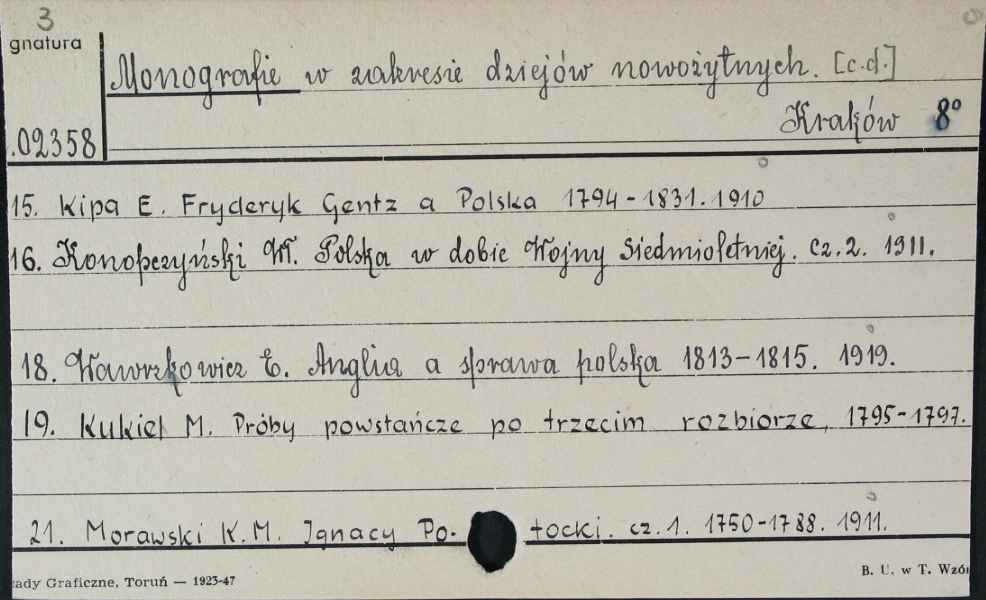 3
gnatura
Monografie w zakresie dziejów nowożytnych. [c.d.]
Kraków 8°
.02358
15. Kipa E. Fryderyk Gentz a Polska 1794-1831. 1910
16. Konopczyński Wł. Polska w dobie Wojny Siedmioletniej. Cz. 2. 1911.
18. Wawrzkowicz E. Anglia a sprawa polska 1813-1815. 1919.
19. Kukiel M. Próby powstańcze po trzecim rozbiorze, 1795-1797.
21. Morawski K.M. Ignacy Po- tocki. cz. 1. 1750-1788. 1911.
ady Graficzne, Toruń — 1923-47
B. U. w T. Wzór